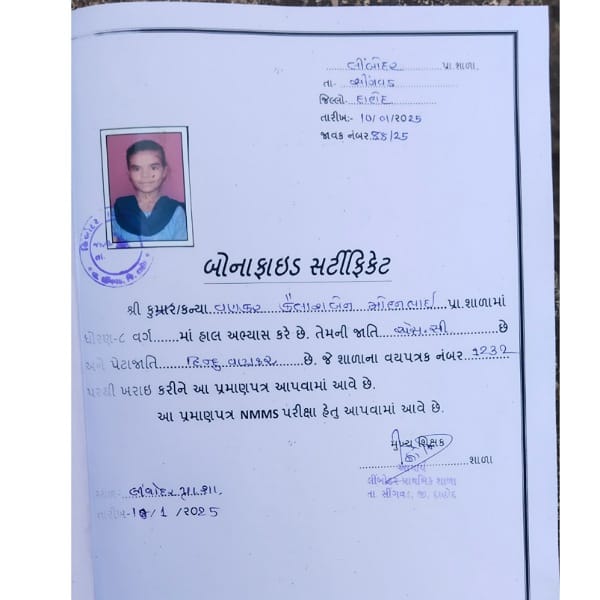 લીંબોદર પ્રા.શાળા.
તા- સીંગવડ
જિલ્લો- દાહોદ
તારીખ:- 10/01/2025
જાવક નંબર.88/25
બોનાફાઇડ સર્ટીફિકેટ
શ્રી કુમાર/કન્યા વણકર કૈલાશબેન મોહનભાઈ પ્રા.શાળામાં
ધોરણ-૮ વર્ગ.......માં હાલ અભ્યાસ કરે છે. તેમની જાતિ એસ.સી છે
અને પેટાજાતિ હિન્દુ વણકર છે. જે શાળાના વયપત્રક નંબર 1232
પરથી ખરાઇ કરીને આ પ્રમાણપત્ર આપવામાં આવે છે.
આ પ્રમાણપત્ર NMMS પરીક્ષા હેતુ આપવામાં આવે છે.
મુખ્ય શિક્ષક
શાળા
આચાર્ય
લીંબોદર પ્રાથમિક શાળા
તા. સીંગવડ, જી. દાહોદ
સ્થળ:- લીંબોદર પ્રા.શા.
તારીખ-10/1/2025